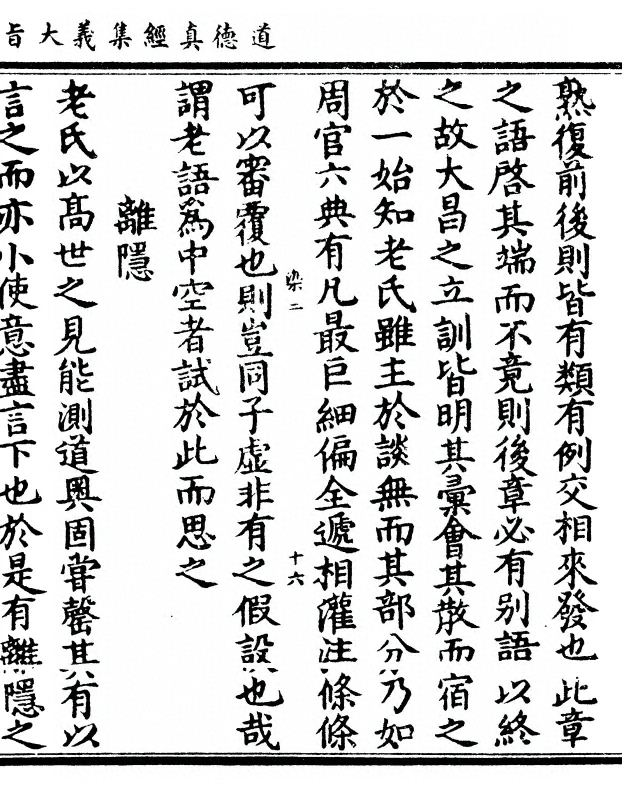 道德真經集義大旨
熟復前後則皆有類有例交相來發也此章
之語啓其端而不竟則後章必有别語以終
之故大昌之立訓皆明其彙會其散而宿之
於一始知老氏雖主於談無而其部分乃如
周官六典有凡最巨細偏全遞相灌注條條
染二
十六
可以審覆也則豈同子虛非有之假設也哉
謂老語爲中空者試於此而思之
離隱
老氏以髙世之見能測道奥固嘗罄其有以
言之而亦小使意盡言下也於是有離隱之